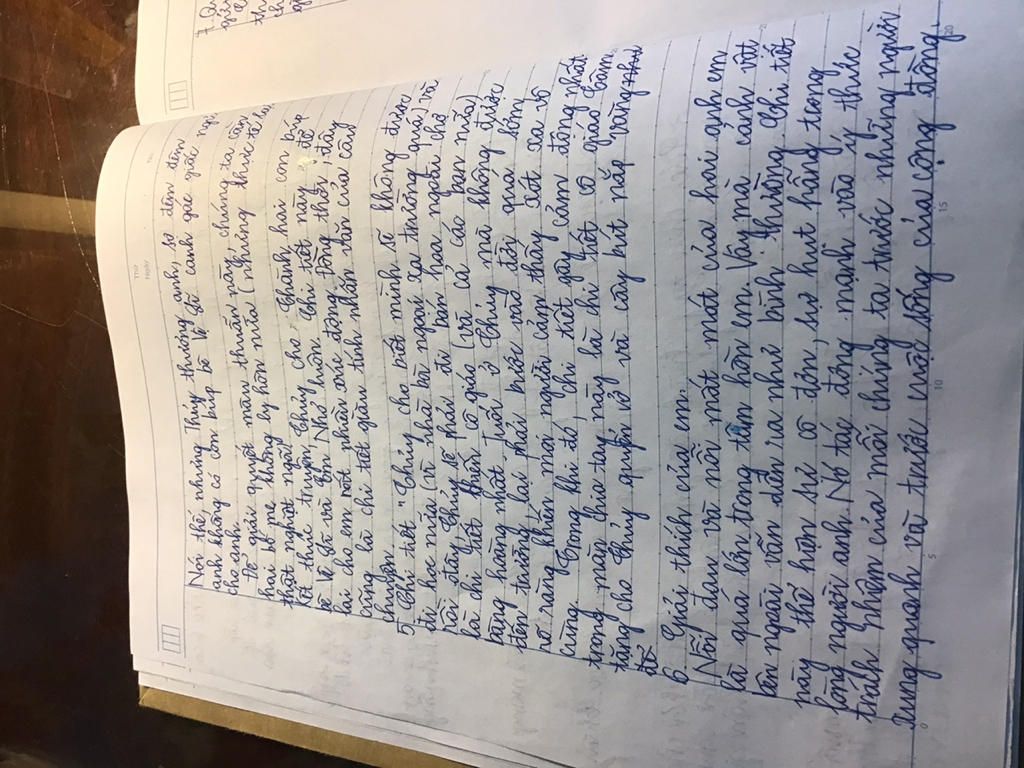 Nói thế, nhưng Thủy thương anh, sợ đêm đêm
anh không có con búp bê Vệ Sĩ canh gác giấc ngủ
cho anh.
Để giải quyết mâu thuẫn này, chúng ta cần
hai bố mẹ không ly hôn nữa (nhưng thực tế lại
thật nghiệt ngã). Thủy cho Thành hai con búp
Kết thúc truyện, Chi tiết này đã
bê Vệ Sĩ và Em Nhỏ luôn. Đồng thời, đây
lại cho em một phần xúc động.
cũng là chi tiết giàu tính nhân văn của câu
chuyện.
5. Chi tiết "Thủy cho biết mình sẽ không được
đi học nữa (vì nhà bà ngoại xa trường quá) và
rồi đây Thủy sẽ phải đi bán hoa ngoài chợ
là chi tiết khiến cô giáo (và cả các bạn nữa)
bàng hoàng nhất. Tuổi ở Thủy mà không được
đến trường lại phải bước vào đời quá sớm
rõ ràng khiến mọi người cảm thấy xót xa vô
cùng. Trong khi đó, chi tiết gây cảm động nhất
trong màn chia tay này là chi tiết cô giáo Tâm
tặng cho Thủy quyển vở và cây bút nắp vàng như
đó
6. Giải thích của em.
Nỗi đau và nỗi mất mát của hai anh em
là quá lớn trong tâm hồn em. Vậy mà cảnh vật
bên ngoài vẫn diễn ra như bình thường. Chi tiết
này thể hiện sự cô đơn, sự hụt hẫng trong
lòng người anh. Nó tác động mạnh vào ý thức
trách nhiệm của mỗi chúng ta trước những người
xung quanh và trước cuộc sống của cộng đồng.
THỨ
NGÀY
0
5
10
15
20